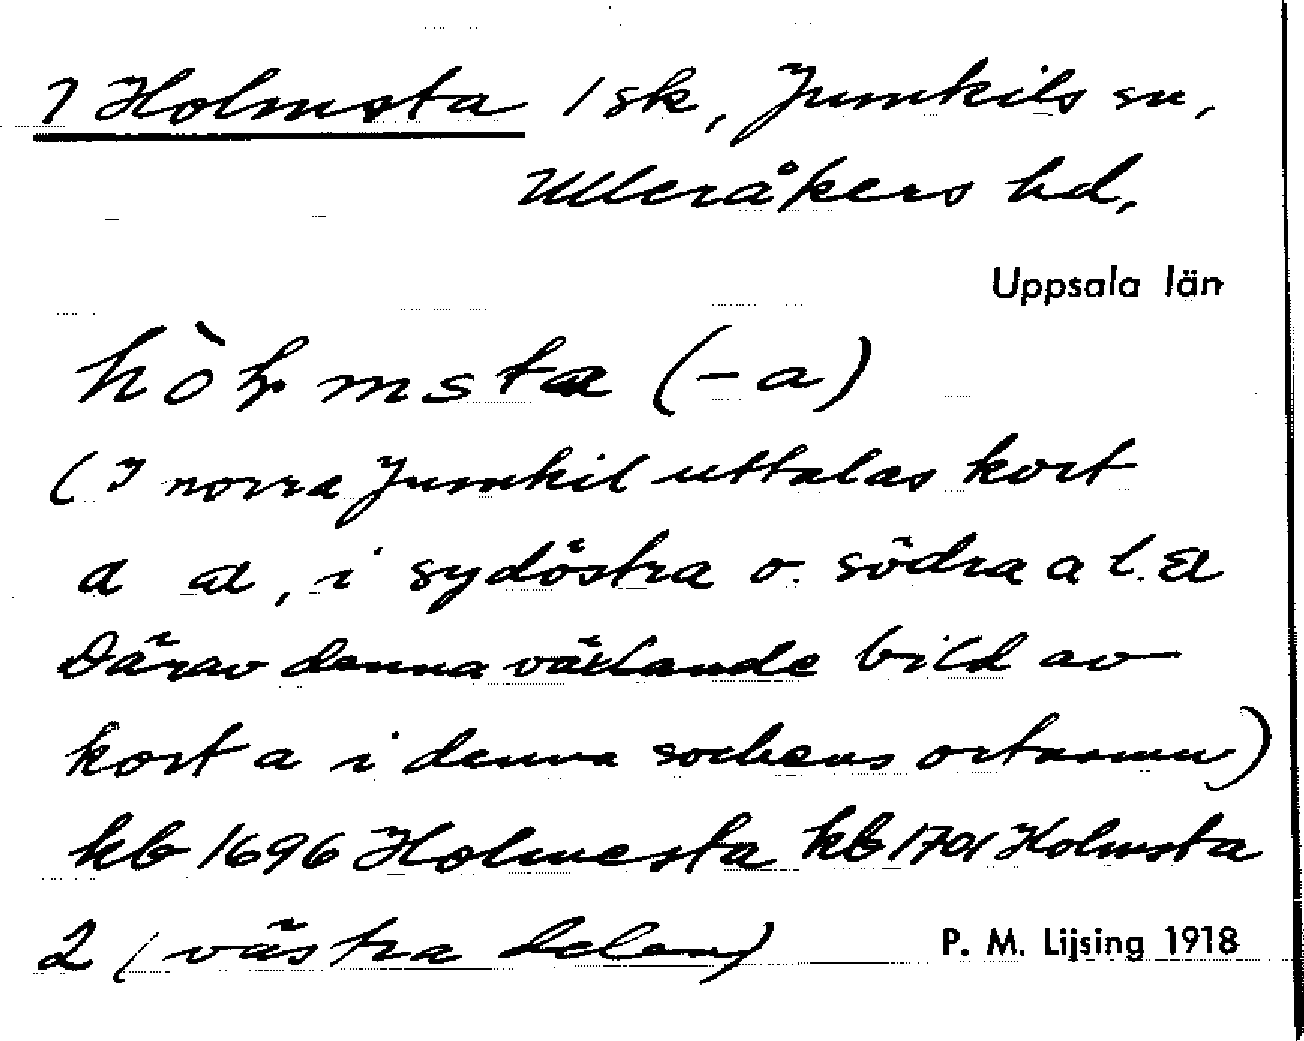 1 Holmsta 1 sk, Jumkils sn,
Ulleråkers hd,
Uppsala län
(-a)
(I norra Jumkil uttalas kort
a a, i sydöstra o. södra a l. a
Därav denna växlande bild av
kort a i denna sockens ortnamn)
kb 1696 Holmesta kb 1701 Holmsta
2 (västra delen) P. M. Lijsing 1918